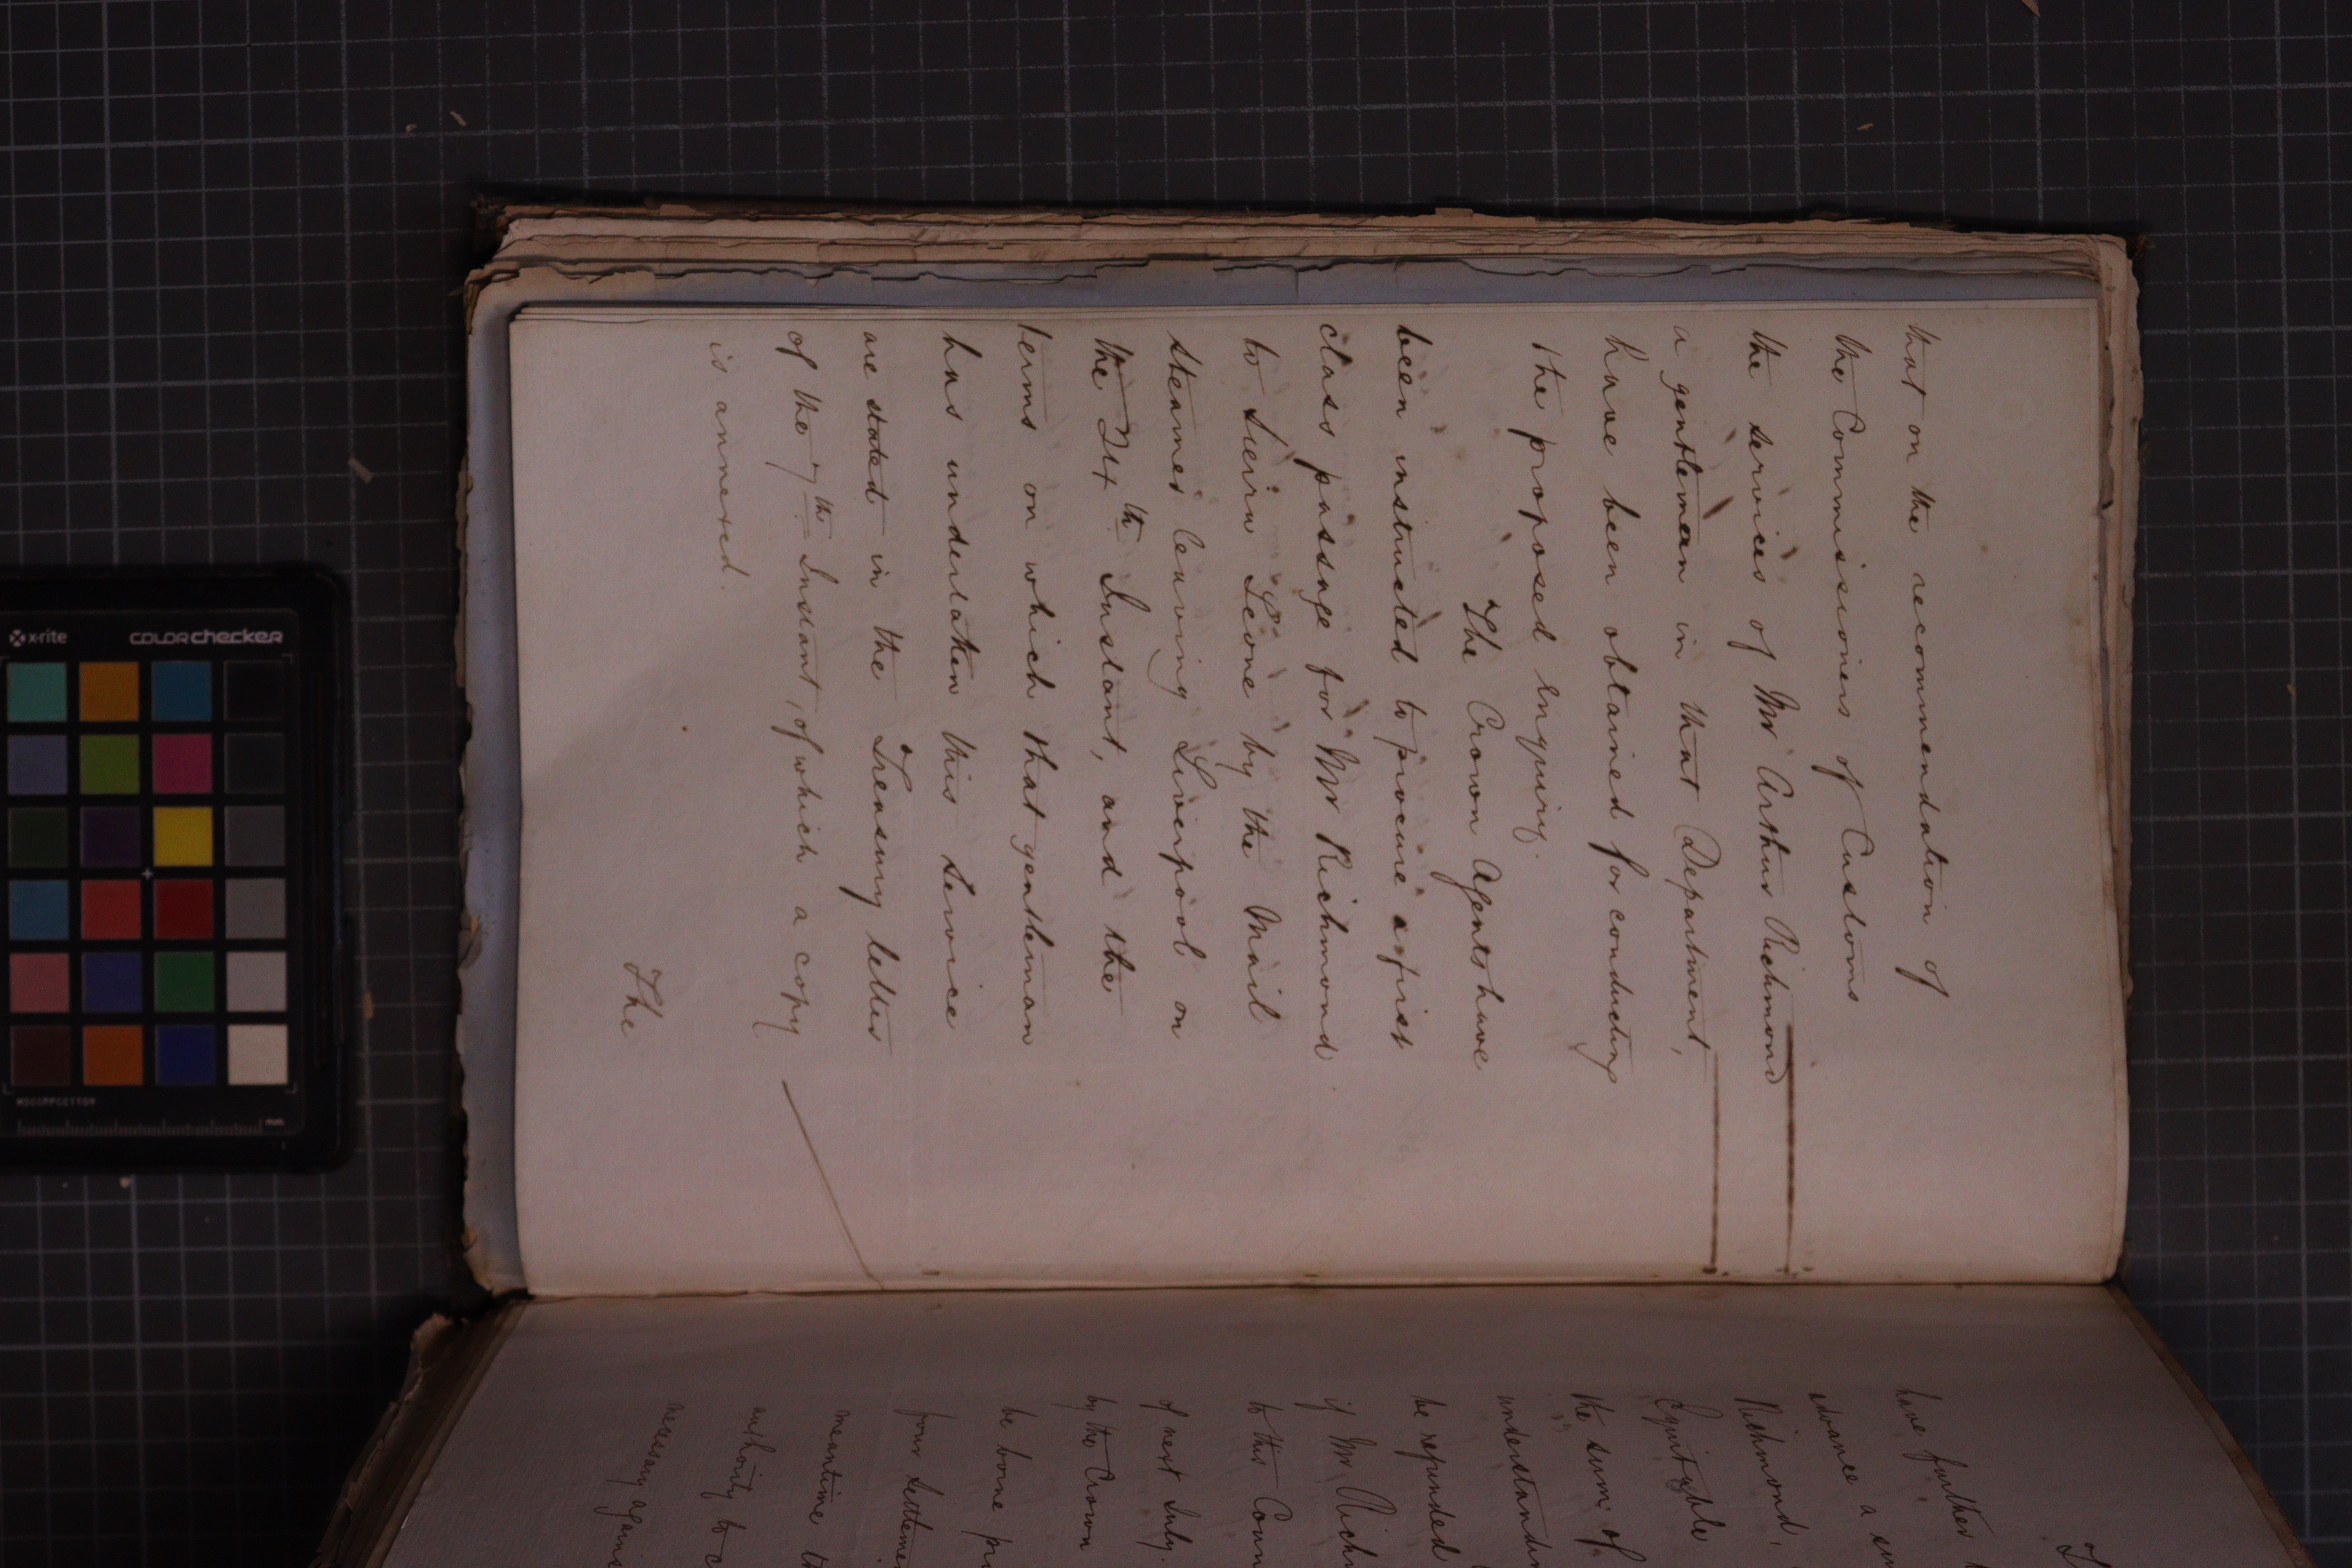 that on the recommendation of
the Commissioners of Customs
the services of Mr Arthur Richmond
a gentleman in that Department,
have been obtained for conducting
the proposed enquiry.
The Crown Agents have
been instructed to procure a first
class passage for Mr Richmond
to Sierra Leone by the Mail
steamer leaving Liverpool on
the 24th Instant, and the
terms on which that gentleman
has undertaken this service
are stated in the Treasury letter
of the 7th Instant, of which a copy
is annexed.
The
have further
advance a sum
Richmond,
Equitable
the sum of
understanding
be refunded
if Mr Rich
to this Coun
of next July.
by the Crown
be borne pr
four Settlemen
meantime th
authority to c
necessary again
x-rite colorchecker
MSCCPPCC1109
mm